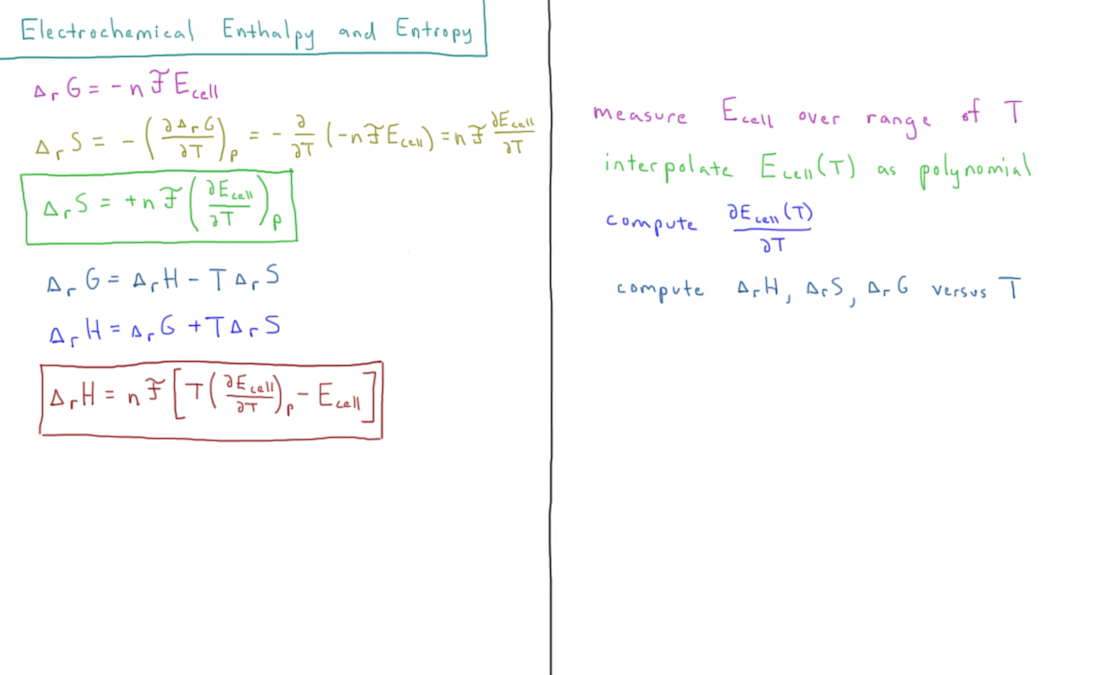 Electrochemical Enthalpy and Entropy
Δ_r G = - n ℱ E_cell
Δ_r S = - (∂Δ_r G / ∂T)_p = - ∂/∂T (-nℱE_cell) = nℱ ∂E_cell/∂T
Δ_r S = +nℱ (∂E_cell / ∂T)_p
Δ_r G = Δ_r H - T Δ_r S
Δ_r H = Δ_r G + T Δ_r S
Δ_r H = nℱ [T (∂E_cell / ∂T)_p - E_cell]
measure E_cell over range of T
interpolate E_cell(T) as polynomial
compute ∂E_cell(T) / ∂T
compute Δ_r H, Δ_r S, Δ_r G versus T